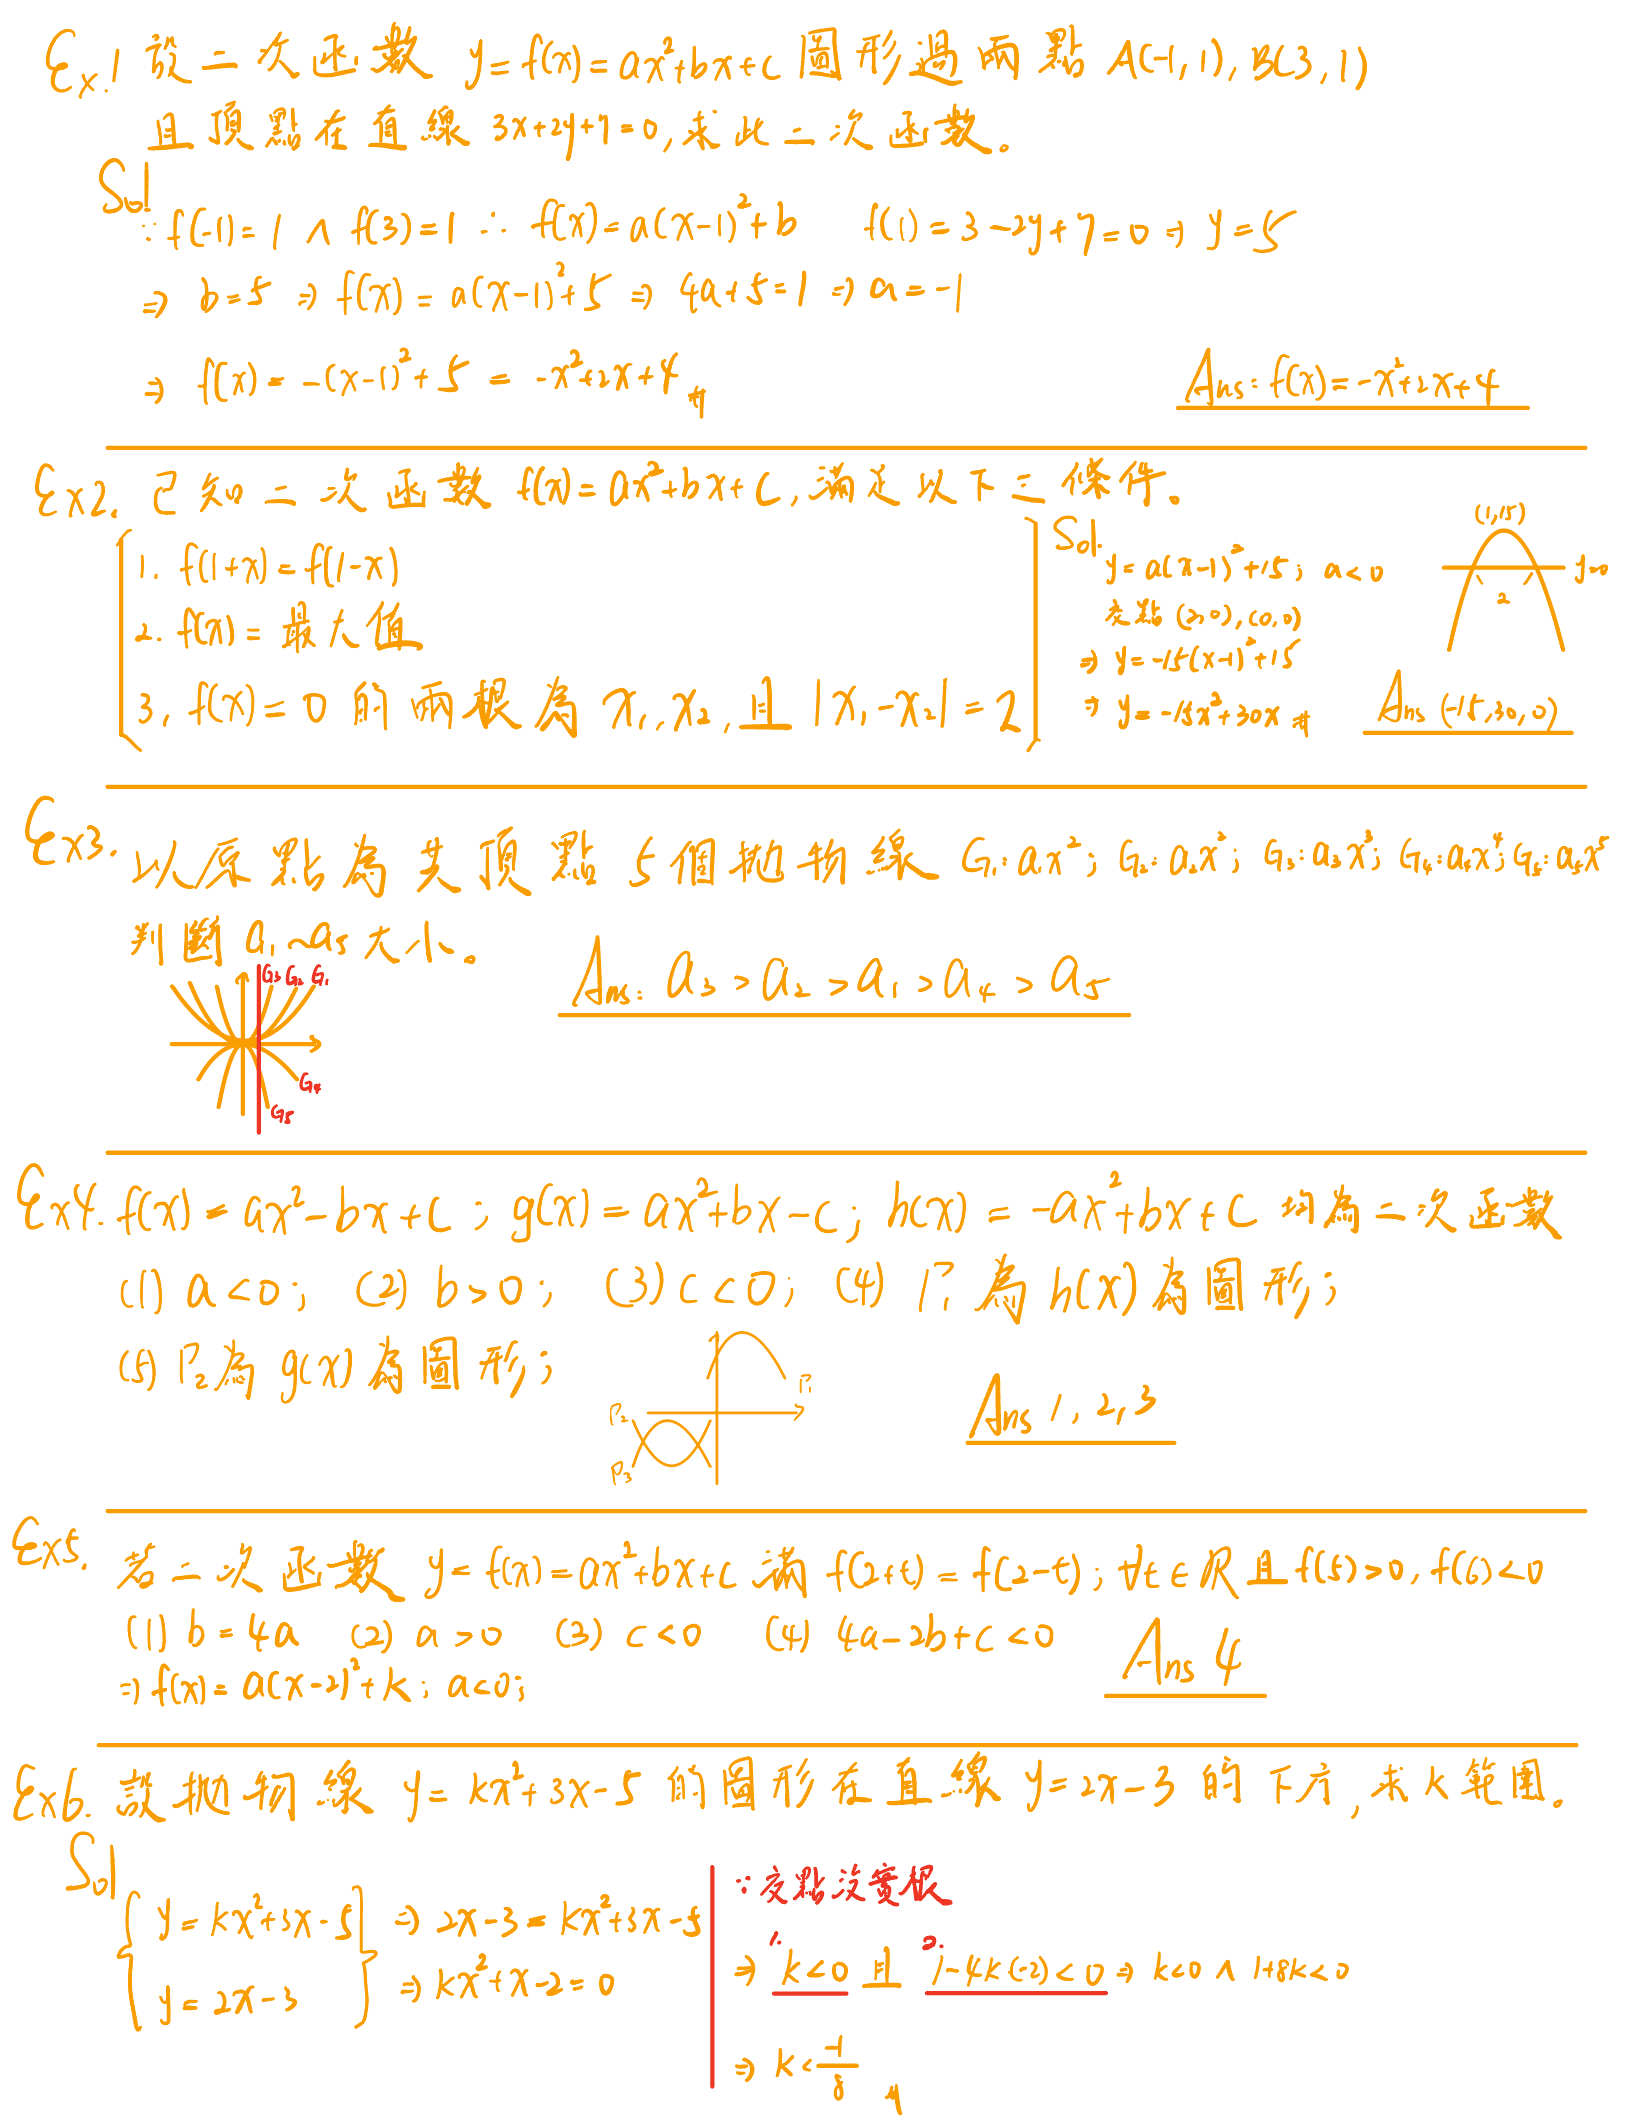 Ex.1 設二次函數 y=f(x)=ax²+bx+c 圖形過兩點 A(-1,1), B(3,1)
且頂點在直線 3x+2y+7=0, 求此二次函數。
Sol
∵ f(-1)=1 ∧ f(3)=1 ∴ f(x)=a(x-1)²+b f(1)=3-2y+7=0 ⇒ y=5
⇒ b=5 ⇒ f(x)=a(x-1)²+5 ⇒ 4a+5=1 ⇒ a=-1
⇒ f(x)=-(x-1)²+5 = -x²+2x+4 #
Ans: f(x)=-x²+2x+4
Ex2. 已知二次函數 f(x)=ax²+bx+c, 滿足以下三條件。
1. f(1+x)=f(1-x)
2. f(x)=最大值
3. f(x)=0 的兩根為 x₁, x₂, 且 |x₁-x₂|=2
Sol.
y=a(x-1)²+15; a<0
交點 (2,0), (0,0)
⇒ y=-15(x-1)²+15
⇒ y=-15x²+30x #
(1,15)
y=0
2
Ans (-15,30,0)
Ex3. 以原點為共頂點 5個拋物線 G₁:a₁x²; G₂:a₂x²; G₃:a₃x³; G₄:a₄x⁴; G₅:a₅x⁵
判斷 a₁~a₅ 大小。
G₃ G₂ G₁
G₄
G₅
Ans: a₃>a₂>a₁>a₄>a₅
Ex4. f(x)=ax²-bx+c ; g(x)=ax²+bx-c; h(x)=-ax²+bx+c 均為二次函數
(1) a<0; (2) b>0; (3) c<0; (4) Γ₁ 為 h(x) 為圖形;
(5) Γ₂ 為 g(x) 為圖形;
Γ₁
Γ₂
Γ₃
Ans 1, 2, 3
Ex5. 若二次函數 y=f(x)=ax²+bx+c 滿 f(2+t)=f(2-t); ∀t∈R 且 f(5)>0, f(6)<0
(1) b=4a (2) a>0 (3) c<0 (4) 4a-2b+c<0
⇒ f(x)=a(x-2)²+k; a<0;
Ans 4
Ex6. 設拋物線 y=kx²+3x-5 的圖形在直線 y=2x-3 的下方, 求 k 範圍。
Sol
y=kx²+3x-5 ⇒ 2x-3=kx²+3x-5
y=2x-3 ⇒ kx²+x-2=0
∵ 交點沒實根
⇒ 1. k<0 且 2. 1-4k(-2)<0 ⇒ k<0 ∧ 1+8k<0
⇒ k<-1/8 #